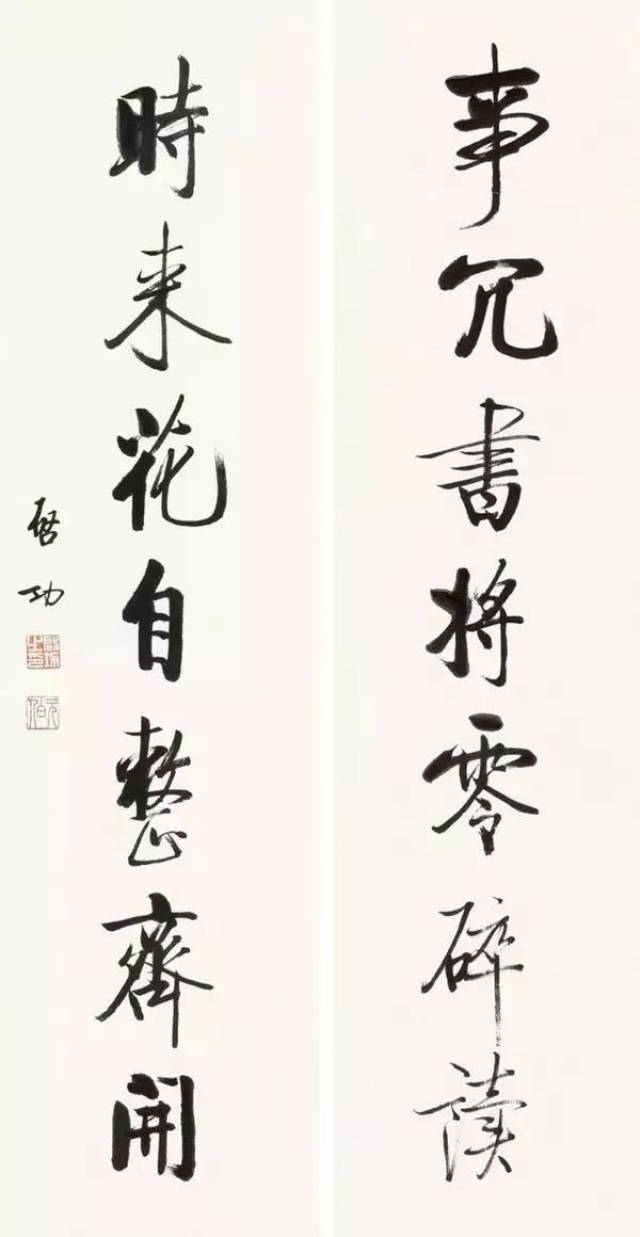 事冗書將零碎讀
時来花自整齊開
啓功